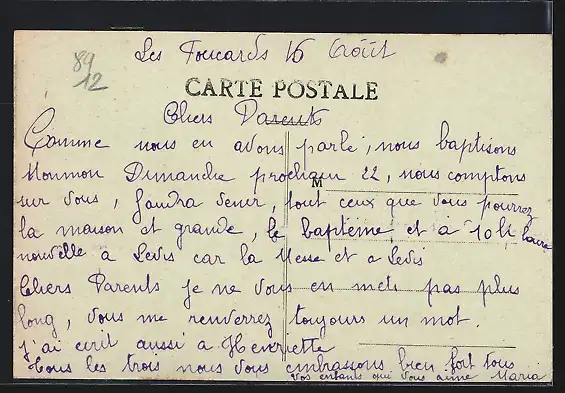 89
12
Les Foucards 16 Août
CARTE POSTALE
Chers Parents
Comme nous en avons parlé, nous baptisons
Monmon Dimanche prochain 22, nous comptons
M
sur vous, faudra venir, tout ceux que vous pourrez
la maison et grande, le baptême et a 10 h, heure
nouvelle a Levis car la Messe et a Levis
Chers Parents je ne vous en mets pas plus
long, vous me renverrez toujours un mot.
j'ai ecrit aussi a Henriette
Tous les trois nous vous embrassons bien fort tous
vos enfants qui vous aime Maria